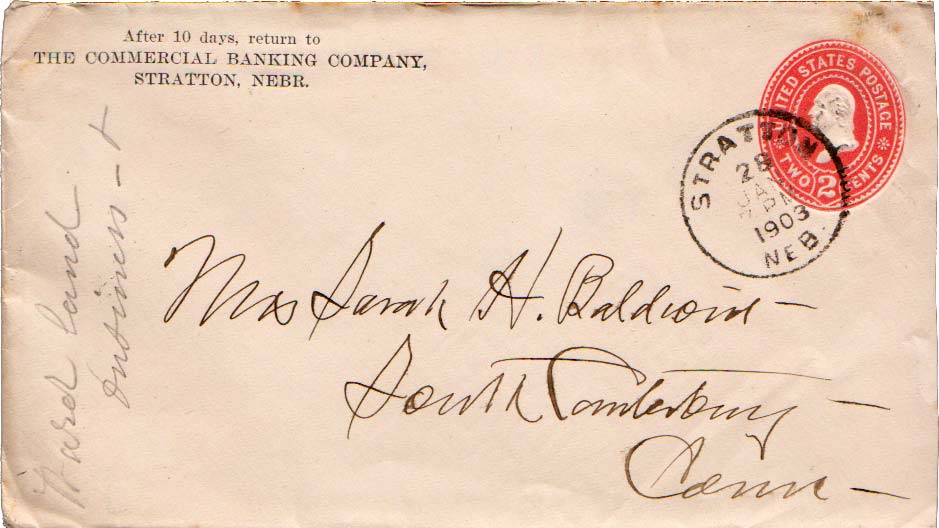 After 10 days, return to
THE COMMERCIAL BANKING COMPANY,
STRATTON, NEBR.
UNITED STATES POSTAGE
TWO 2 CENTS
STRATTON
28
JAN
1903
NEB.
Mrs Sarah H. Baldwin —
South Canterbury —
Conn —
Ward Land
Business —